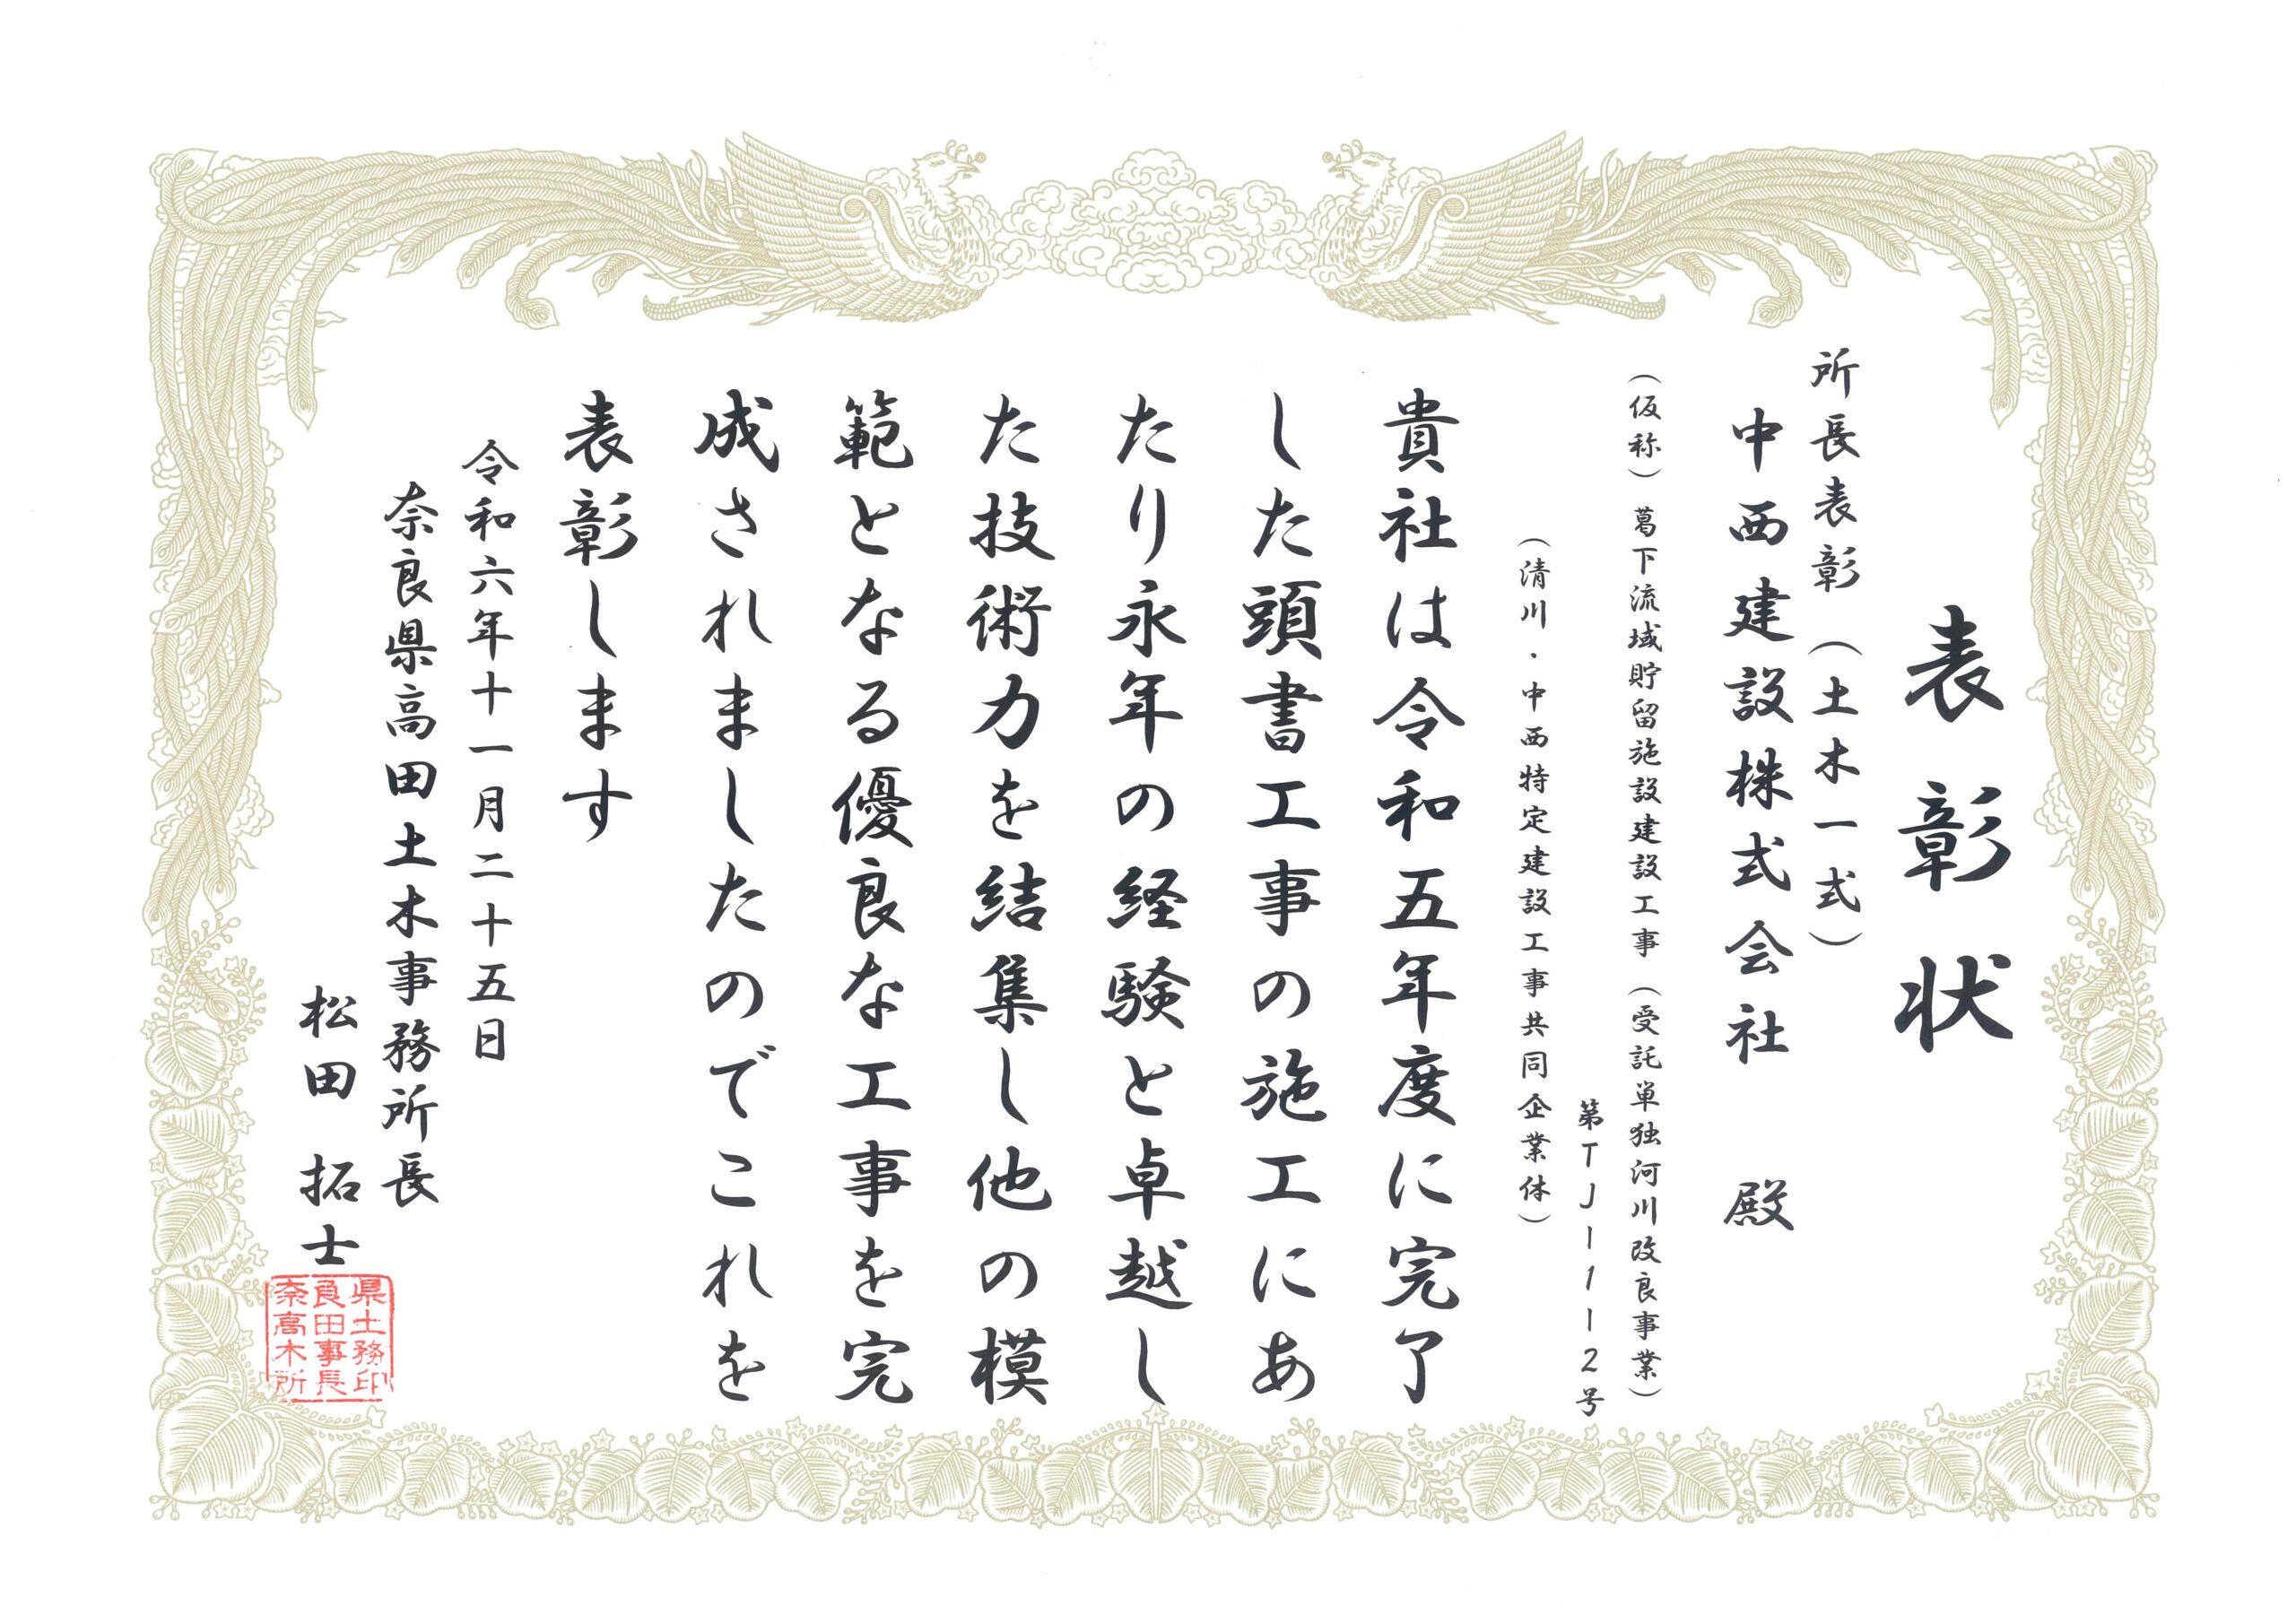 表彰状
所長表彰（土木一式）
中西建設株式会社　殿
（仮称）葛下流域貯留施設建設工事（受託単独河川改良事業）
第TJ－1－2号
（清川・中西特定建設工事共同企業体）
貴社は令和五年度に完了
した頭書工事の施工にあ
たり永年の経験と卓越し
た技術力を結集し他の模
範となる優良な工事を完
成されましたのでこれを
表彰します
令和六年十一月二十五日
奈良県高田土木事務所長
松田　拓士
県土務印
良田事長
奈高木所